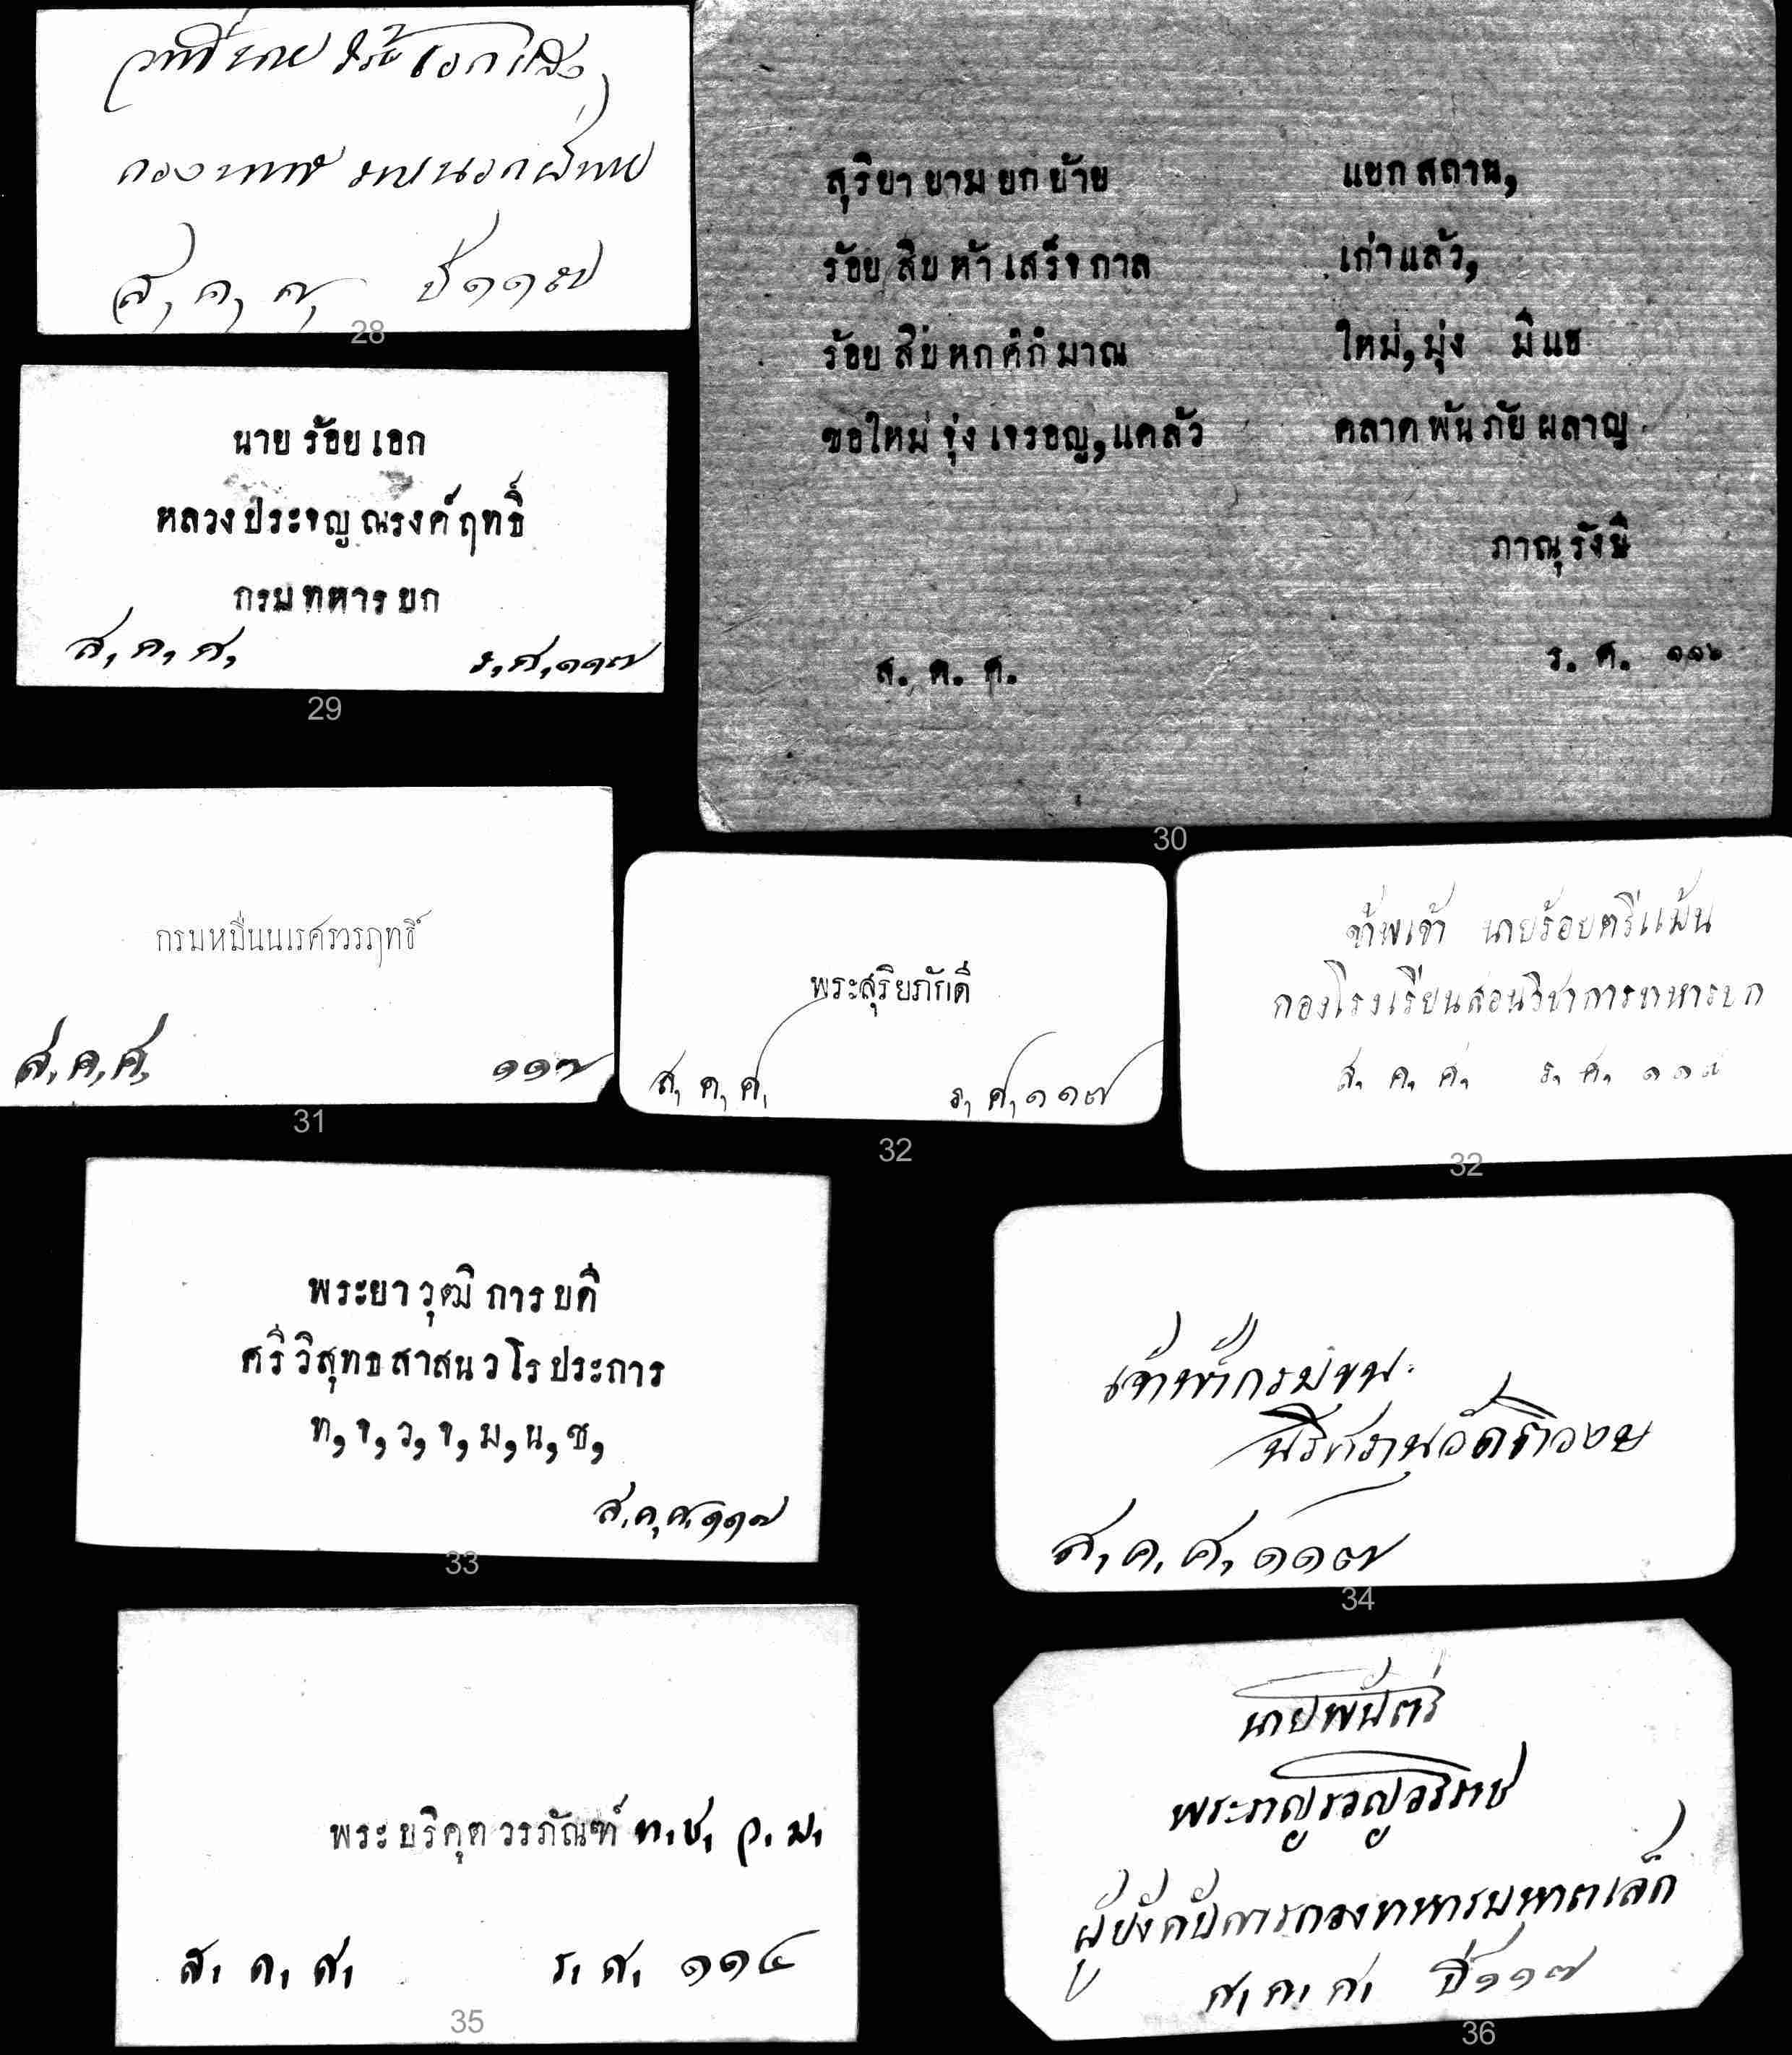 ส, ค, ศ, ปี ๑๑๗
28
นาย ร้อย เอก
หลวง ประจญ ณรงค์ ฤทธิ์
กรม ทหาร บก
ส, ค, ศ, ร, ศ, ๑๑๗
29
สุริยา ยาม ยก ย้าย แยก สถาน,
ร้อย สิบ ห้า เสร็จ กาล เก่า แล้ว,
ร้อย สิบ หก ศก มาณ ใหม่, มุ่ง มี แฮ
ขอ ใหม่ จุ่ง เจรอญ, แคล้ว คลาด พ้น ภัย ผลาญ
ภาณุรังษี
ส. ค. ศ. ร. ศ. ๑๑๖
30
กรมหมื่นนเรศรวรฤทธิ์
ส, ค, ศ, ๑๑๗
31
พระสุริยภักดี
ส, ค, ศ, ร, ศ, ๑๑๗
32
ข้าพเจ้า นายร้อยตรีแม้น
กองโรงเรียนสอนวิชาการทหารบก
ส, ค, ศ, ร, ศ, ๑๑๗
32
พระยา วุฒิ การ บดี
ศรี วิสุทธ สาสน ว โร ประการ
ท, จ, ว, จ, ม, น, ช,
ส, ค, ศ, ๑๑๗
33
เจ้าฟ้ากรมขุน
นริศรานุวัดติวงษ
ส, ค, ศ, ๑๑๗
34
พระ บริคุต วรภัณฑ์ ท, ช, ว, ม,
ส, ค, ศ, ร, ศ, ๑๑๔
35
นายพันตรี
ผู้บังคับการกองทหารมหาดเล็ก
ส, ค, ศ, ปี ๑๑๗
36